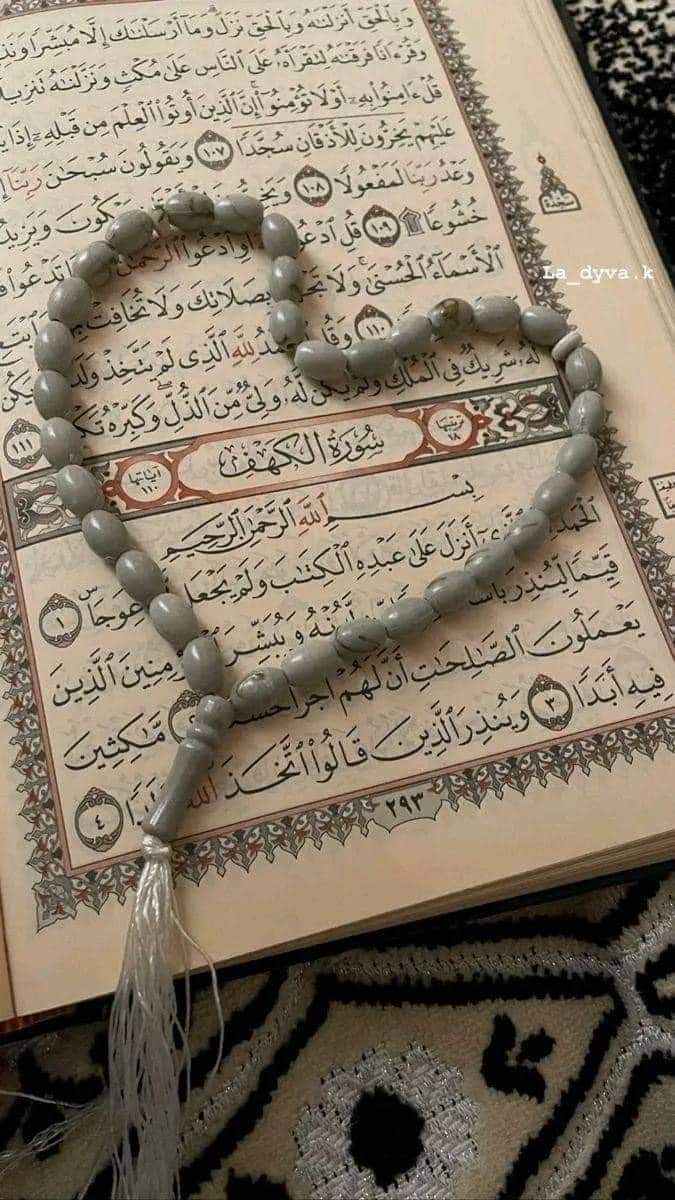 وَبِٱلْحَقِّ أَنزَلْنَٰهُ وَبِٱلْحَقِّ نَزَلَ وَمَآ أَرْسَلْنَٰكَ إِلَّا مُبَشِّرًا
وَقُرْءَانًا فَرَقْنَٰهُ لِتَقْرَأَهُۥ عَلَى ٱلنَّاسِ عَلَىٰ مُكْثٍ وَنَزَّلْنَٰهُ تَنزِيلًا
قُلْ ءَامِنُوا۟ بِهِۦٓ أَوْ لَا تُؤْمِنُوٓا۟ إِنَّ ٱلَّذِينَ أُوتُوا۟ ٱلْعِلْمَ مِن قَبْلِهِۦٓ إِذَا
عَلَيْهِمْ يَخِرُّونَ لِلْأَذْقَانِ سُجَّدًا ١٠٧ وَيَقُولُونَ سُبْحَٰنَ رَبِّنَآ
وَعْدُ رَبِّنَا لَمَفْعُولًا ١٠٨
خُشُوعًا ۩ ١٠٩ قُلِ ٱدْعُوا۟ أَوِ ٱدْعُوا۟ ٱلرَّحْمَٰنَ تَدْعُوا۟
ٱلْأَسْمَآءُ ٱلْحُسْنَىٰ وَلَا بِصَلَاتِكَ وَلَا تُخَافِتْ
١١٠ لِلَّهِ ٱلَّذِى لَمْ يَتَّخِذْ
لَّهُۥ شَرِيكٌ فِى ٱلْمُلْكِ وَلَمْ يَكُن لَّهُۥ وَلِىٌّ مِّنَ ٱلذُّلِّ وَكَبِّرْهُ ١١١
سجدة
La_dyva.k
ترتيبها ١٨ سُورَةُ الكَهْفِ آياتها ١١٠
بِسْمِ ٱللَّهِ ٱلرَّحْمَٰنِ ٱلرَّحِيمِ
أَنزَلَ عَلَىٰ عَبْدِهِ ٱلْكِتَٰبَ وَلَمْ يَجْعَل عِوَجَا ۜ ١
قَيِّمًا لِّيُنذِرَ وَيُبَشِّرَ ٱلَّذِينَ
يَعْمَلُونَ ٱلصَّٰلِحَٰتِ أَنَّ لَهُمْ أَجْرًا حَسَنًا مَّٰكِثِينَ
فِيهِ أَبَدًا ٣ وَيُنذِرَ ٱلَّذِينَ قَالُوا۟ ٱتَّخَذَ ٱللَّهُ ٤
٢٩٣